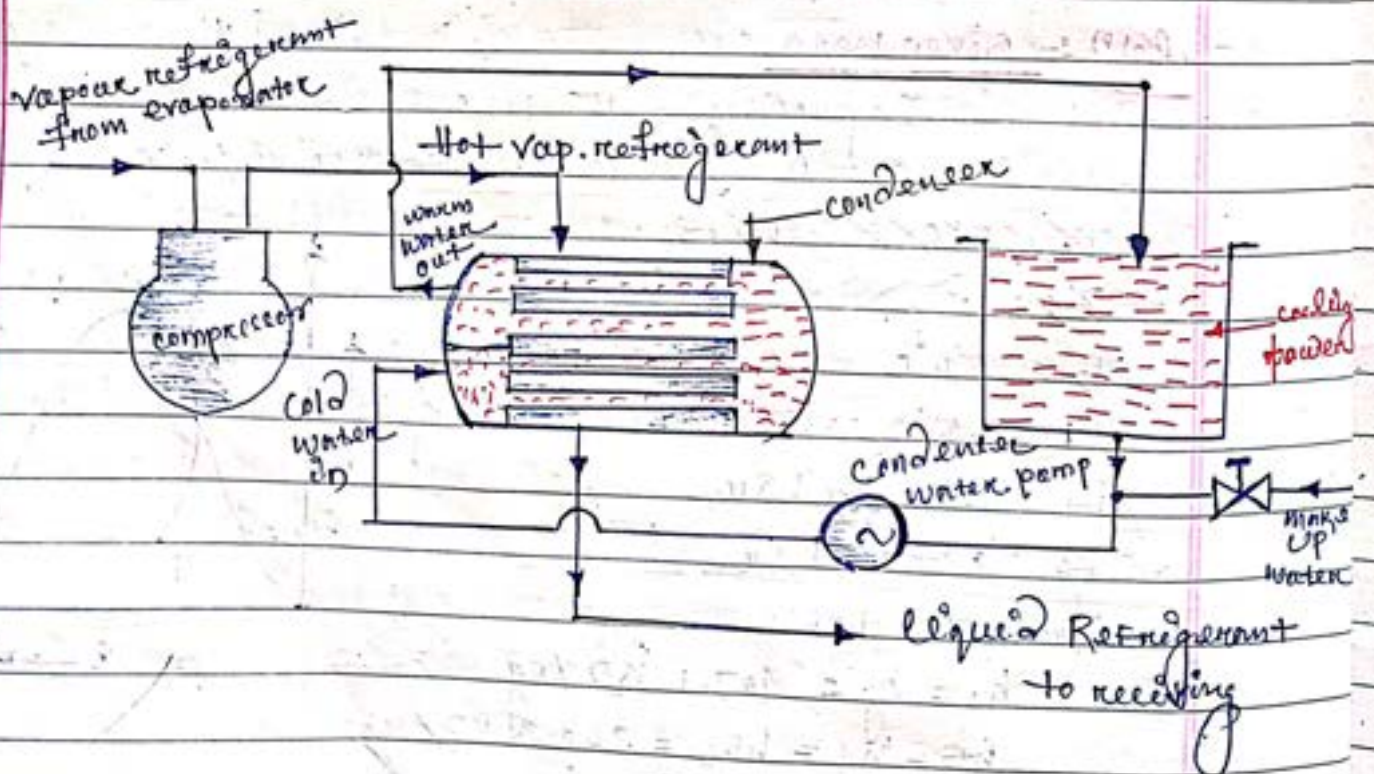 vapour refrigerant
from evaporator
Hot vap. refregerant
condenser
warm
water
out
compressor
cooling
tower
Cold
water
in
Condenser
water pump
make
up
water
liquid Refrigerant
to receiving